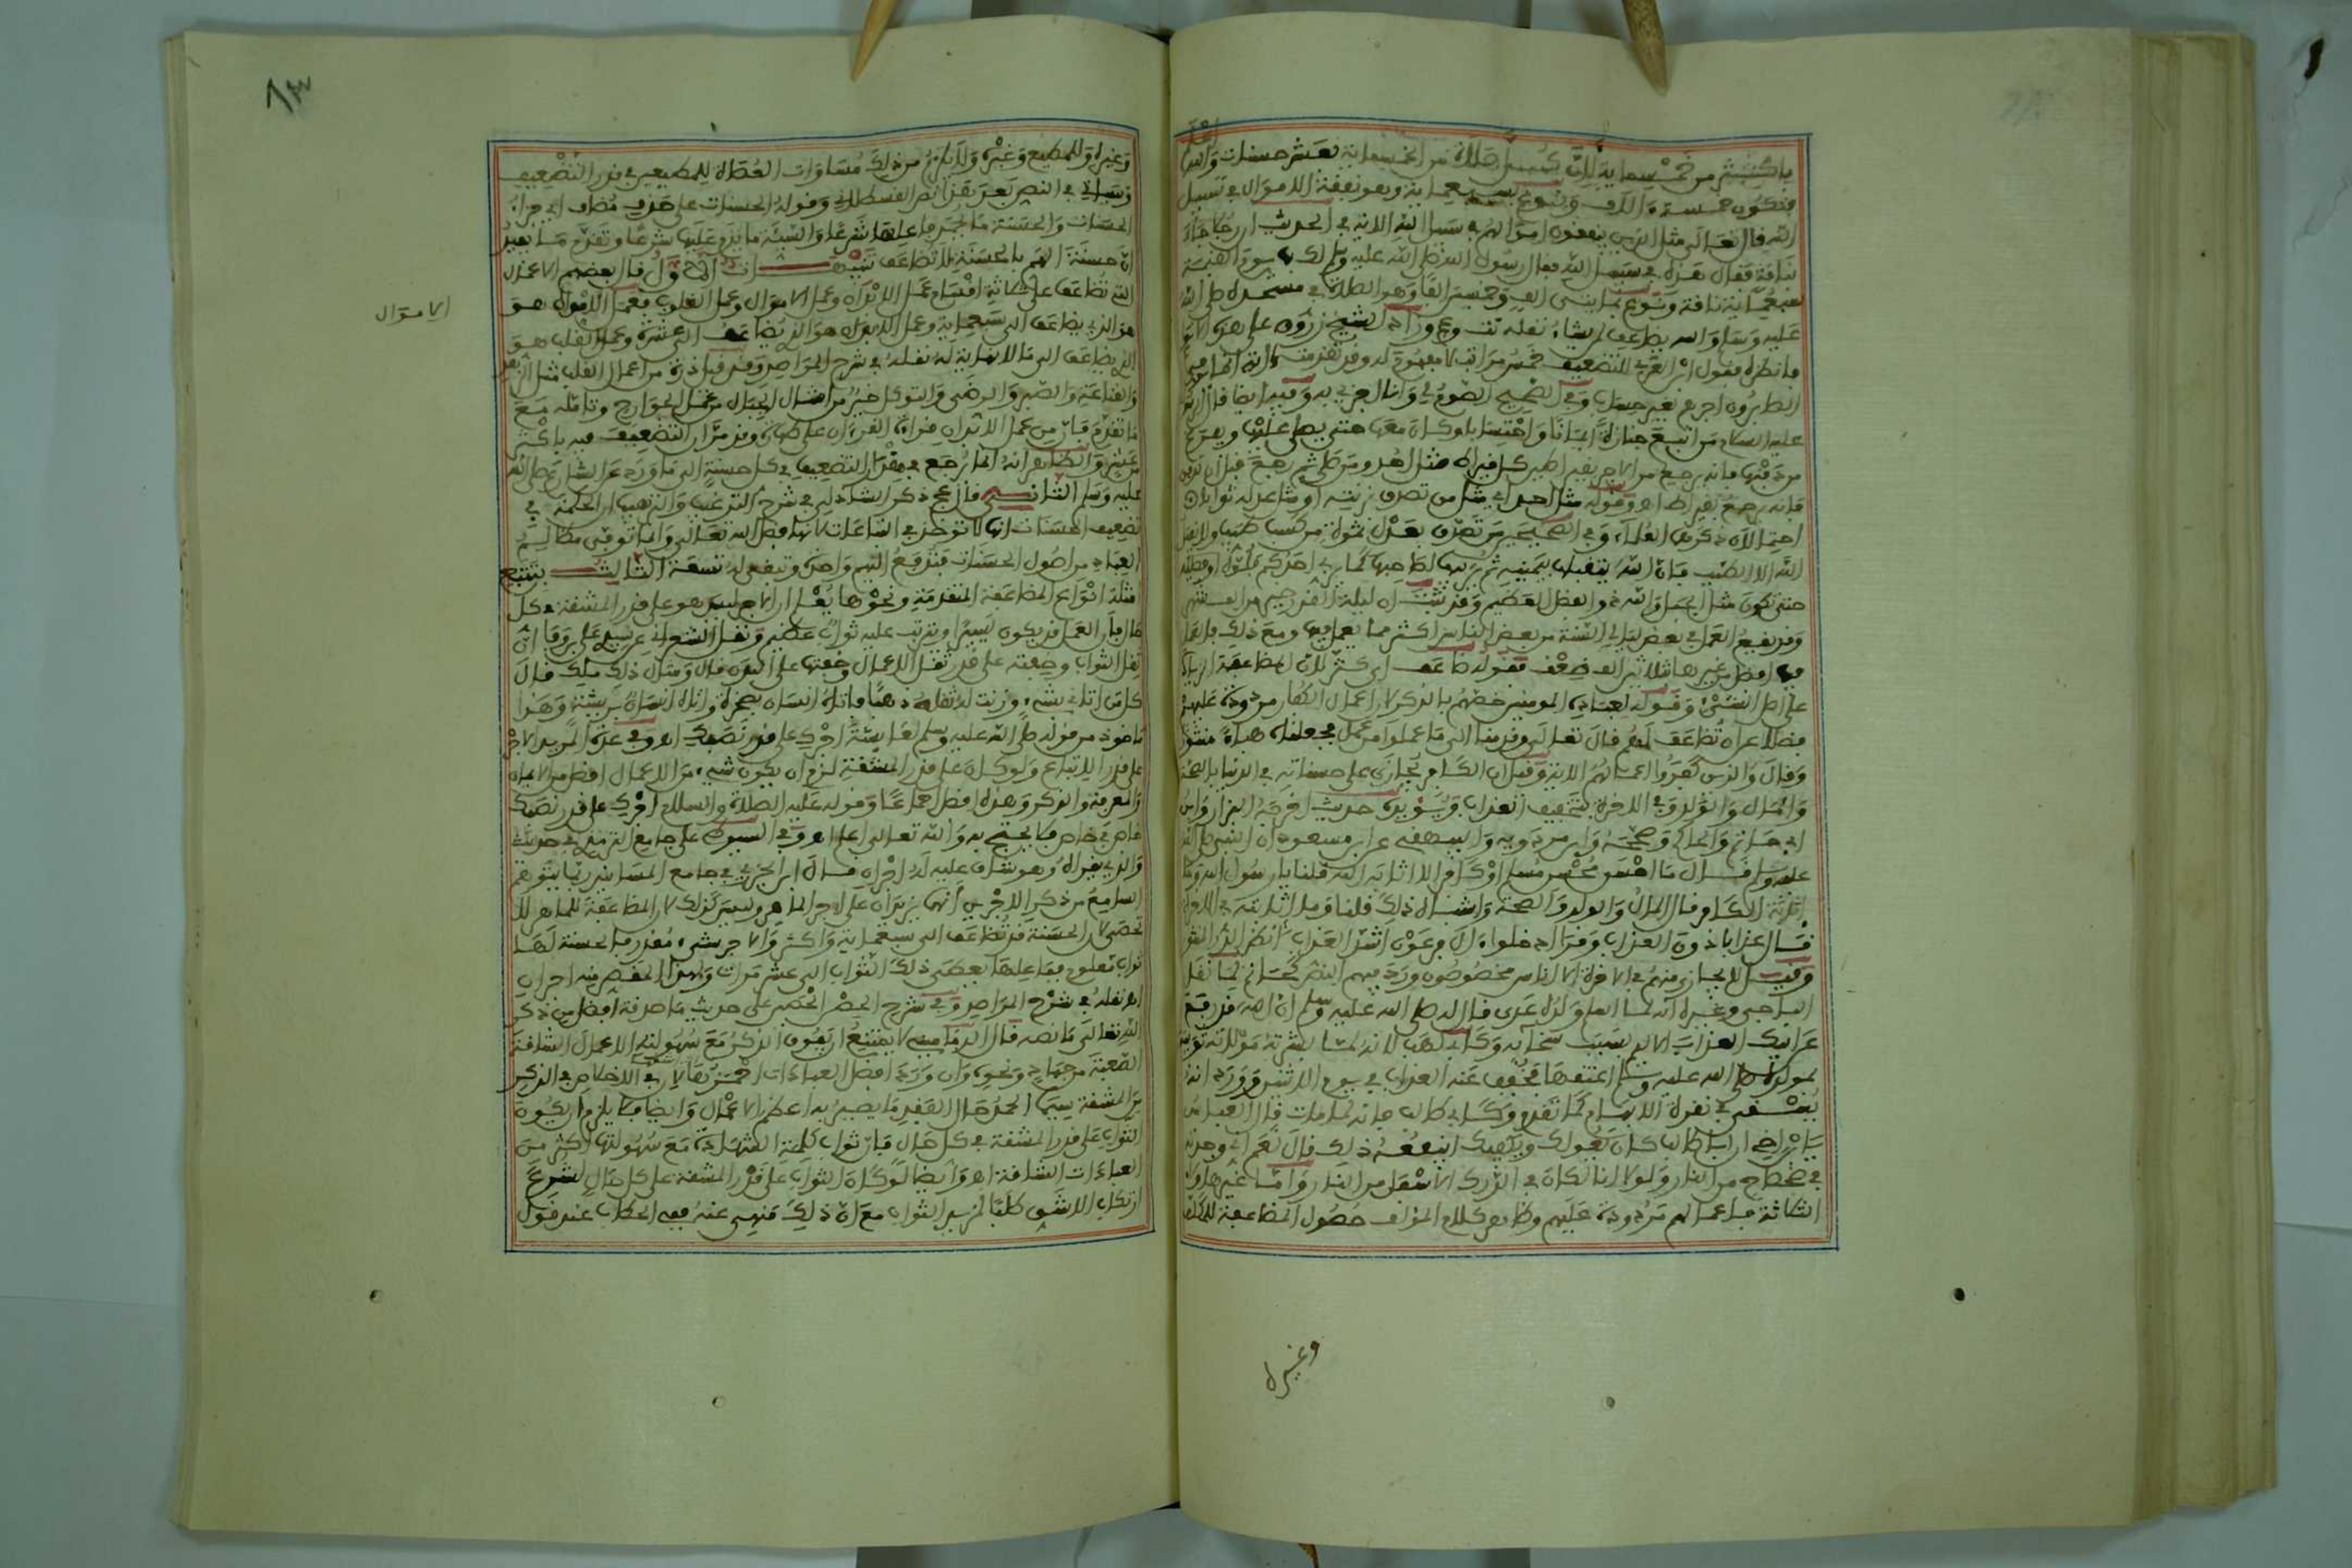 باكثر من خمسماية لان كسبس صلاة من الخمسماية بعشر حسنات والله اعلم
فتكون خمسة ءالاف ونوع بسبعماية وهو نفقة الاموال في سبيل
الله قال تعالى مثل الذين ينفقون اموالهم في سبيل الله الاية في الحديث ان رجلا جاء
بناقة فقال هذه في سبيل الله فقال رسول الله صلى الله عليه وسلم لك بها يوم القيمة
سبعماية ناقة ونوع بماينتى الف وخمسين الفا وهو الصلاة في مسجده صلى الله
عليه وسلم والله يضاعف لمن يشاء نقله تت وعج وزاد الشيخ زروق على هذه الانواع
فانظره فقول ابن العربي للتضعيف خمس مراتب لا مفهوم له وقد تقدمت ءاية انما يوفى
الصابرون اجرهم بغير حساب وفي الصحيح الصوم لي وانا اجزي به وفيه ايضا قال
عليه السلام من اتبع جنازة ايمانا واحتسابا وكان معها حتى يصلى عليها ويفرغ
من دفنها فانه يرجع من الاجر بقيراطين كل قيراط مثل احد ومن صلى ثم رجع قبل ان تدفن
فانه يرجع بقيراط اه وقوله مثل احد اي مثل من تصدق بزنته او مثاعدله ثوابا
احتمالان ذكرهما العلماء وفي الصحيحين من تصدق بعدل تمرة من كسب طيب ولا يقبل
الله الا الطيب فان الله يتقبلها بيمينه ثم يربيها لصاحبها كما يربي احدكم فلوه او فصيله
حتى تكون مثل الجبل والله ذو الفضل العظيم وقد ثبت ان ليلة القدر خير من الف شهر
وقد يقع العمل في بعض ليالي السنة من بعض الناس اكثر مما يعمل فيها ومع ذلك فالعمل
فيها افضل من غيرها بثلاثين الف ضعف فقوله ضاعف اي كثر لان المضاعفة الزيادة
على اصل الشئ وقوله لعباده المومنين خصهم بالذكر لان اعمال الكفار مردودة عليهم
فضلا عن ان تضاعف لهم قال تعالى وقدمنا الى ما عملوا من عمل فجعلناه هباء منثورا
وقال والذين كفروا اعمالهم الاية وقيل ان الكافر يجازى على حسناته في الدنيا بالصحة
والمال والولد وفي الاخرة بتخفيف العذاب ويؤيده حديث اخرجه البزار وابن
ابي حاتم والحاكم وصححه وابن مردويه والبيهقي عن ابن مسعود ان النبي صلى الله
عليه وسلم قال ما احسن محسن مسلم او كافر الا اثابه الله قلنا يا رسول الله وما
اثابة الكافر قال المال والولد والصحة واشباه ذلك قلنا وما اثابته في الاخرة
قال عذابا دون العذاب وقرا ادخلوا ءال فرعون اشد العذاب انظر الدر المنثور
وقيل المجازى منهم في الاخرة اناس مخصوصون ورد فيهم النص كحاتم لما نقل
الباجي وغيره انه لما اسلم ولده عدي قال له صلى الله عليه وسلم ان الله قد رفع
عن ابيك العذاب الاليم بسبب سخائه وكابي لهب لانه لما بشرته مولاته ثويبة
بمولده صلى الله عليه وسلم اعتقها فخفف عنه العذاب في يوم الاثنين وورد انه
يسقى في نقرة الابهام كما تقدم وكابي طالب فانه لما مات قال العباس
يا ابن اخي ان ابا طالب كان يحوطك ويكفيك اينفعه ذلك قال نعم اني وجدته
في ضحضاح من النار ولولا انا لكان في الدرك الاسفل من النار واما غير هاولاء
الثلاثة فاعمالهم مردودة عليهم وظاهر كلام المؤلف حصول المضاعفة للمكلف
وغيره
الاموال
وغيره وللمطيع وغيره ولا يلزم من ذلك مساوات العصاة للمطيعين في قدر التضعيف
وسياتي في النص بعد بقدر النص القسطلاني وقوله الحسنات على حذف مضاف اي جزاء
الحسنات والحسنة ما يحمد فاعلها شرعا والسيئة ما يذم عليها شرعا وتقدم ما يفيد
ان حسنة الهم بالحسنة لا تضاعف تنبيهات الاول قال بعضهم الاعمال
التي تضاعف على ثلاثة اقسام عمل الابدان وعمل الاموال وعمل القلوب فعمل الاموال هو
هو الذي يضاعف الى سبعماية وعمل الابدان هو الذي يضاعف الى عشرة وعمل القلب هو
الذي يضاعف الى ما لا نهاية له نقله في شرح المراصد وقد قيل ذرة من اعمال القلب مثل الزهد
والقناعة والصبر والرضى والتوكل خير من امثال الجبال من عمل الجوارح وتامله مع
ما تقدم فان من عمل الابدان قراءة القرءان على طهارة وقد مر ان التضعيف فيه باكثر
من عشر والظاهر انه انما يرجع في مقدار التضعيف في كل حسنة الى ما ورد عن الشارع صلى الله
عليه وسلم الثاني قال عج ذكر الشاذلي في شرح الترغيب والترهيب ان الحكمة في
تضعيف الحسنات انها لا توخذ في التباعات لانها فضل الله تعالى وانما توفى مظالم
العباد من اصول الحسنات فتدفع اليهم واحدة وتبقى له تسعة الثالث بتتبع
امثلة انواع المضاعفة المتقدمة ونحوها يعلم ان الاجر ليس هو على قدر المشقة في كل
حال فان العمل قد يكون يسيرا ويترتب عليه ثواب عظيم ونقل الشعراني عن سيدي علي وفا ان
ثقل الثواب وخفته على قدر ثقل الاعمال وخفتها على البدن قال ومثال ذلك ملك قال
كل من اتاني بشيء وزنت له ثقله ذهبا فاتاه انسان بصخرة واتاه انسان بريشة وهذا
ماخوذ من قوله صلى الله عليه وسلم لعايشة اجرك على قدر نصبك اه وفي عدة المريد الاجر
على قدر الاتباع ولو كان على قدر المشقة لزم ان يكون شيء من الاعمال افضل من الايمان
والمعرفة والذكر وهذه افضل اجماعا وقوله عليه الصلاة والسلام اجرك على قدر نصبك
خاص في خاص فلا يحتج به والله تعالى اعلم اه وفي السيوطي على جامع الترمذي في حديث
والذي يقراه وهو شاق عليه له اجران قال ابن الجوزي في جامع المسانيد ربما يتوهم
السامع من ذكر الاجرين انهما يزيدان على اجر الماهر وليس كذلك لان المضاعفة للماهر لا
تحصى لان الحسنة قد تضاعف الى سبعماية واكثر والاجر شيء مقدر فالحسنة لها
ثواب معلوم ففاعلها يعطى ذلك الثواب الى عشر مرات ولهذا المقصر منه اجران
اه نقله في شرح المراصد وفي شرح الحصن الحصين على حديث ما صدقة افضل من ذكر
الله تعالى ما نصه قال الدماميني لا يمتنع ان يفوق الذكر مع سهولته الاعمال الشاقة
الصعبة من جهاد ونحوه وان ورد افضل العبادات احمزها لان في الاخلاص في الذكر
من المشقة سيما الحمد حال الفقر ما يصير به اعظم الاعمال وايضا فلا يلزم ان يكون
الثواب على قدر المشقة في كل حال فان ثواب كلمة الشهادة مع سهولتها اكثر من
العبادات الشاقة اه وايضا لو كان الثواب على قدر المشقة على كل حال لشرع
ارتكاب الاشق طلبا لمزيد الثواب مع ان ذلك منهي عنه ففي الحطاب عند قول